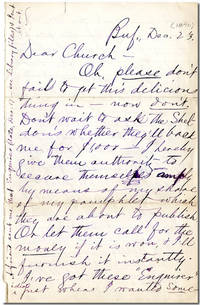 (1870)
Buf., Dec. 23.
Dear Church —
Oh, please don't
fail to get this delicious
thing in — now don't.
Don't wait to ask the Shel-
dons whether they'll back
me for $1,000 — I hereby
give them authority to
secure themselves
by means of my share
of my pamphlet which
they are about to publish
Or let them call for the
money if it is won, & I'll
furnish it instantly.
I've got these "Enquirer"
just where I wanted some